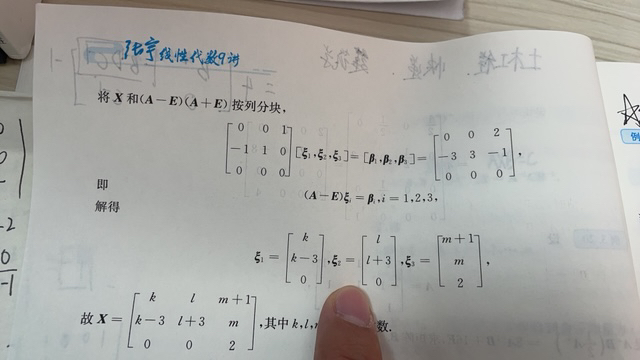 张宇线性代数9讲
将 X 和(A−E)(A+E)按列分块,
[0 0 1; −1 1 0; 0 0 0][ξ₁,ξ₂,ξ₃]=[β₁,β₂,β₃]=[0 0 2; −3 3 −1; 0 0 0],
即 (A−E)ξᵢ=βᵢ,i=1,2,3,
解得
ξ₁=[k; k−3; 0],ξ₂=[l; l+3; 0],ξ₃=[m+1; m; 2],
故 X=[k l m+1; k−3 l+3 m; 0 0 2],其中 k,l, 数.
例